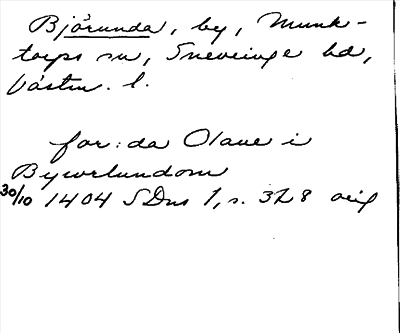 Björunda, by, Munk-
torps sn, Snevringe hd,
Västm. l.
for: da Olaue i
Bywrlundom
30/10 1404 SDns 1, s. 328 orig